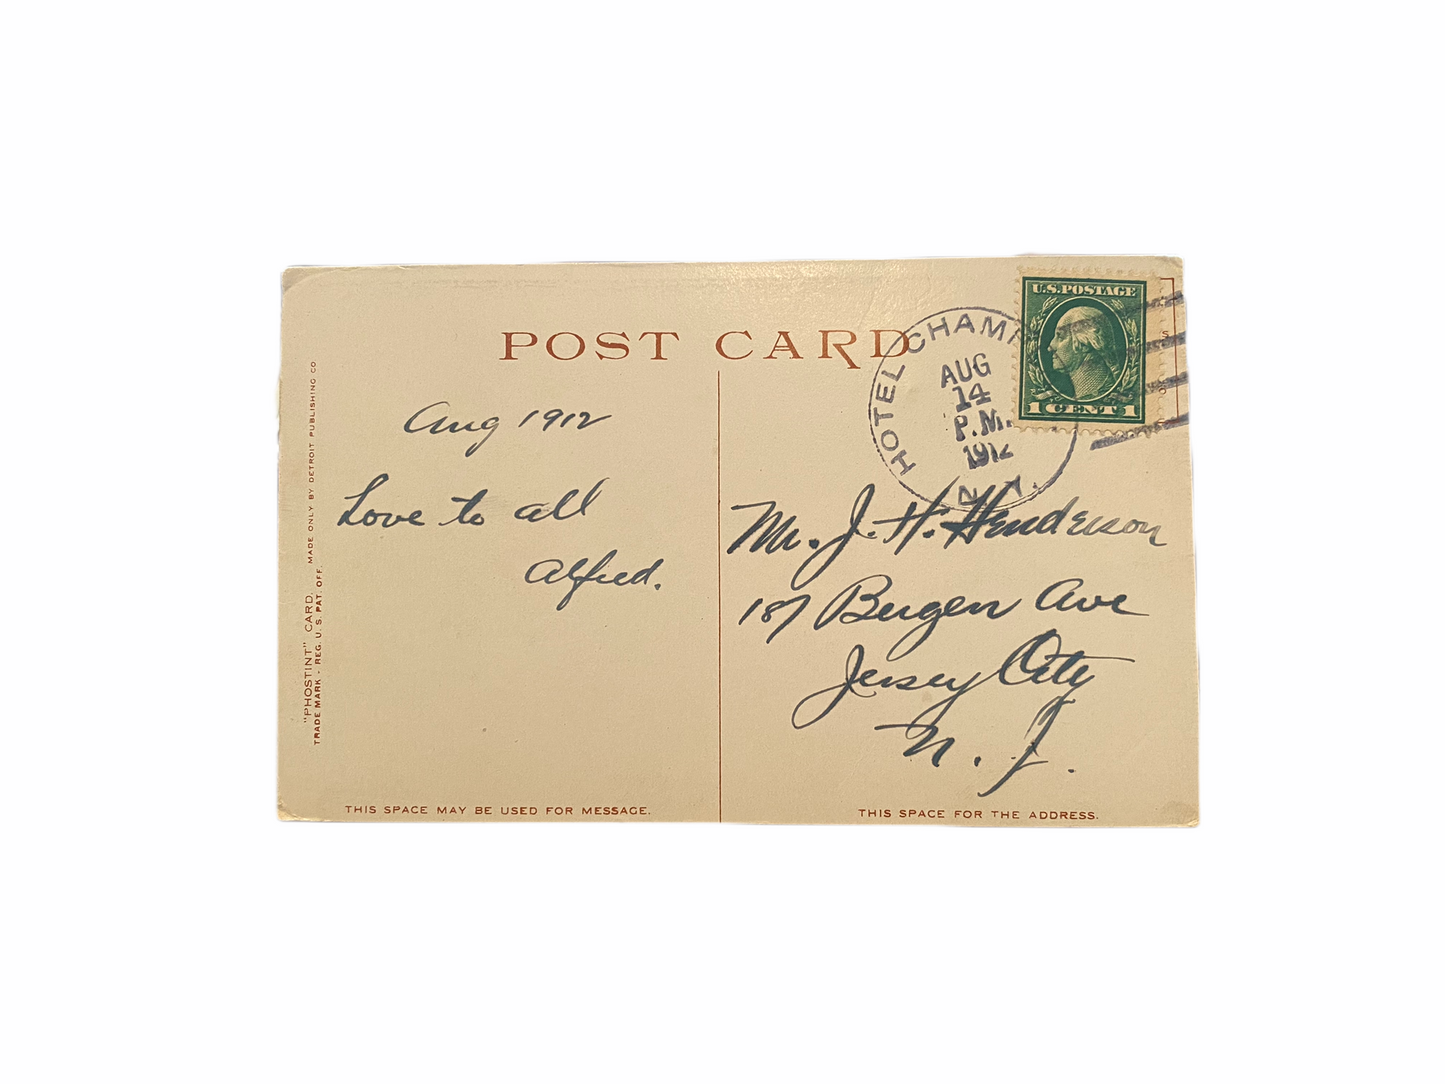 POST CARD
"PHOSTINT" CARD. MADE ONLY BY DETROIT PUBLISHING CO
TRADE MARK - REG. U. S. PAT. OFF.
Aug 1912
Love to all
Alfred.
THIS SPACE MAY BE USED FOR MESSAGE.
HOTEL CHAMP
AUG
14
P.M.
1912
N. Y.
U.S. POSTAGE
1 CENT 1
Mr. J. H. Henderson
187 Bergen Ave
Jersey City
N. J.
THIS SPACE FOR THE ADDRESS.